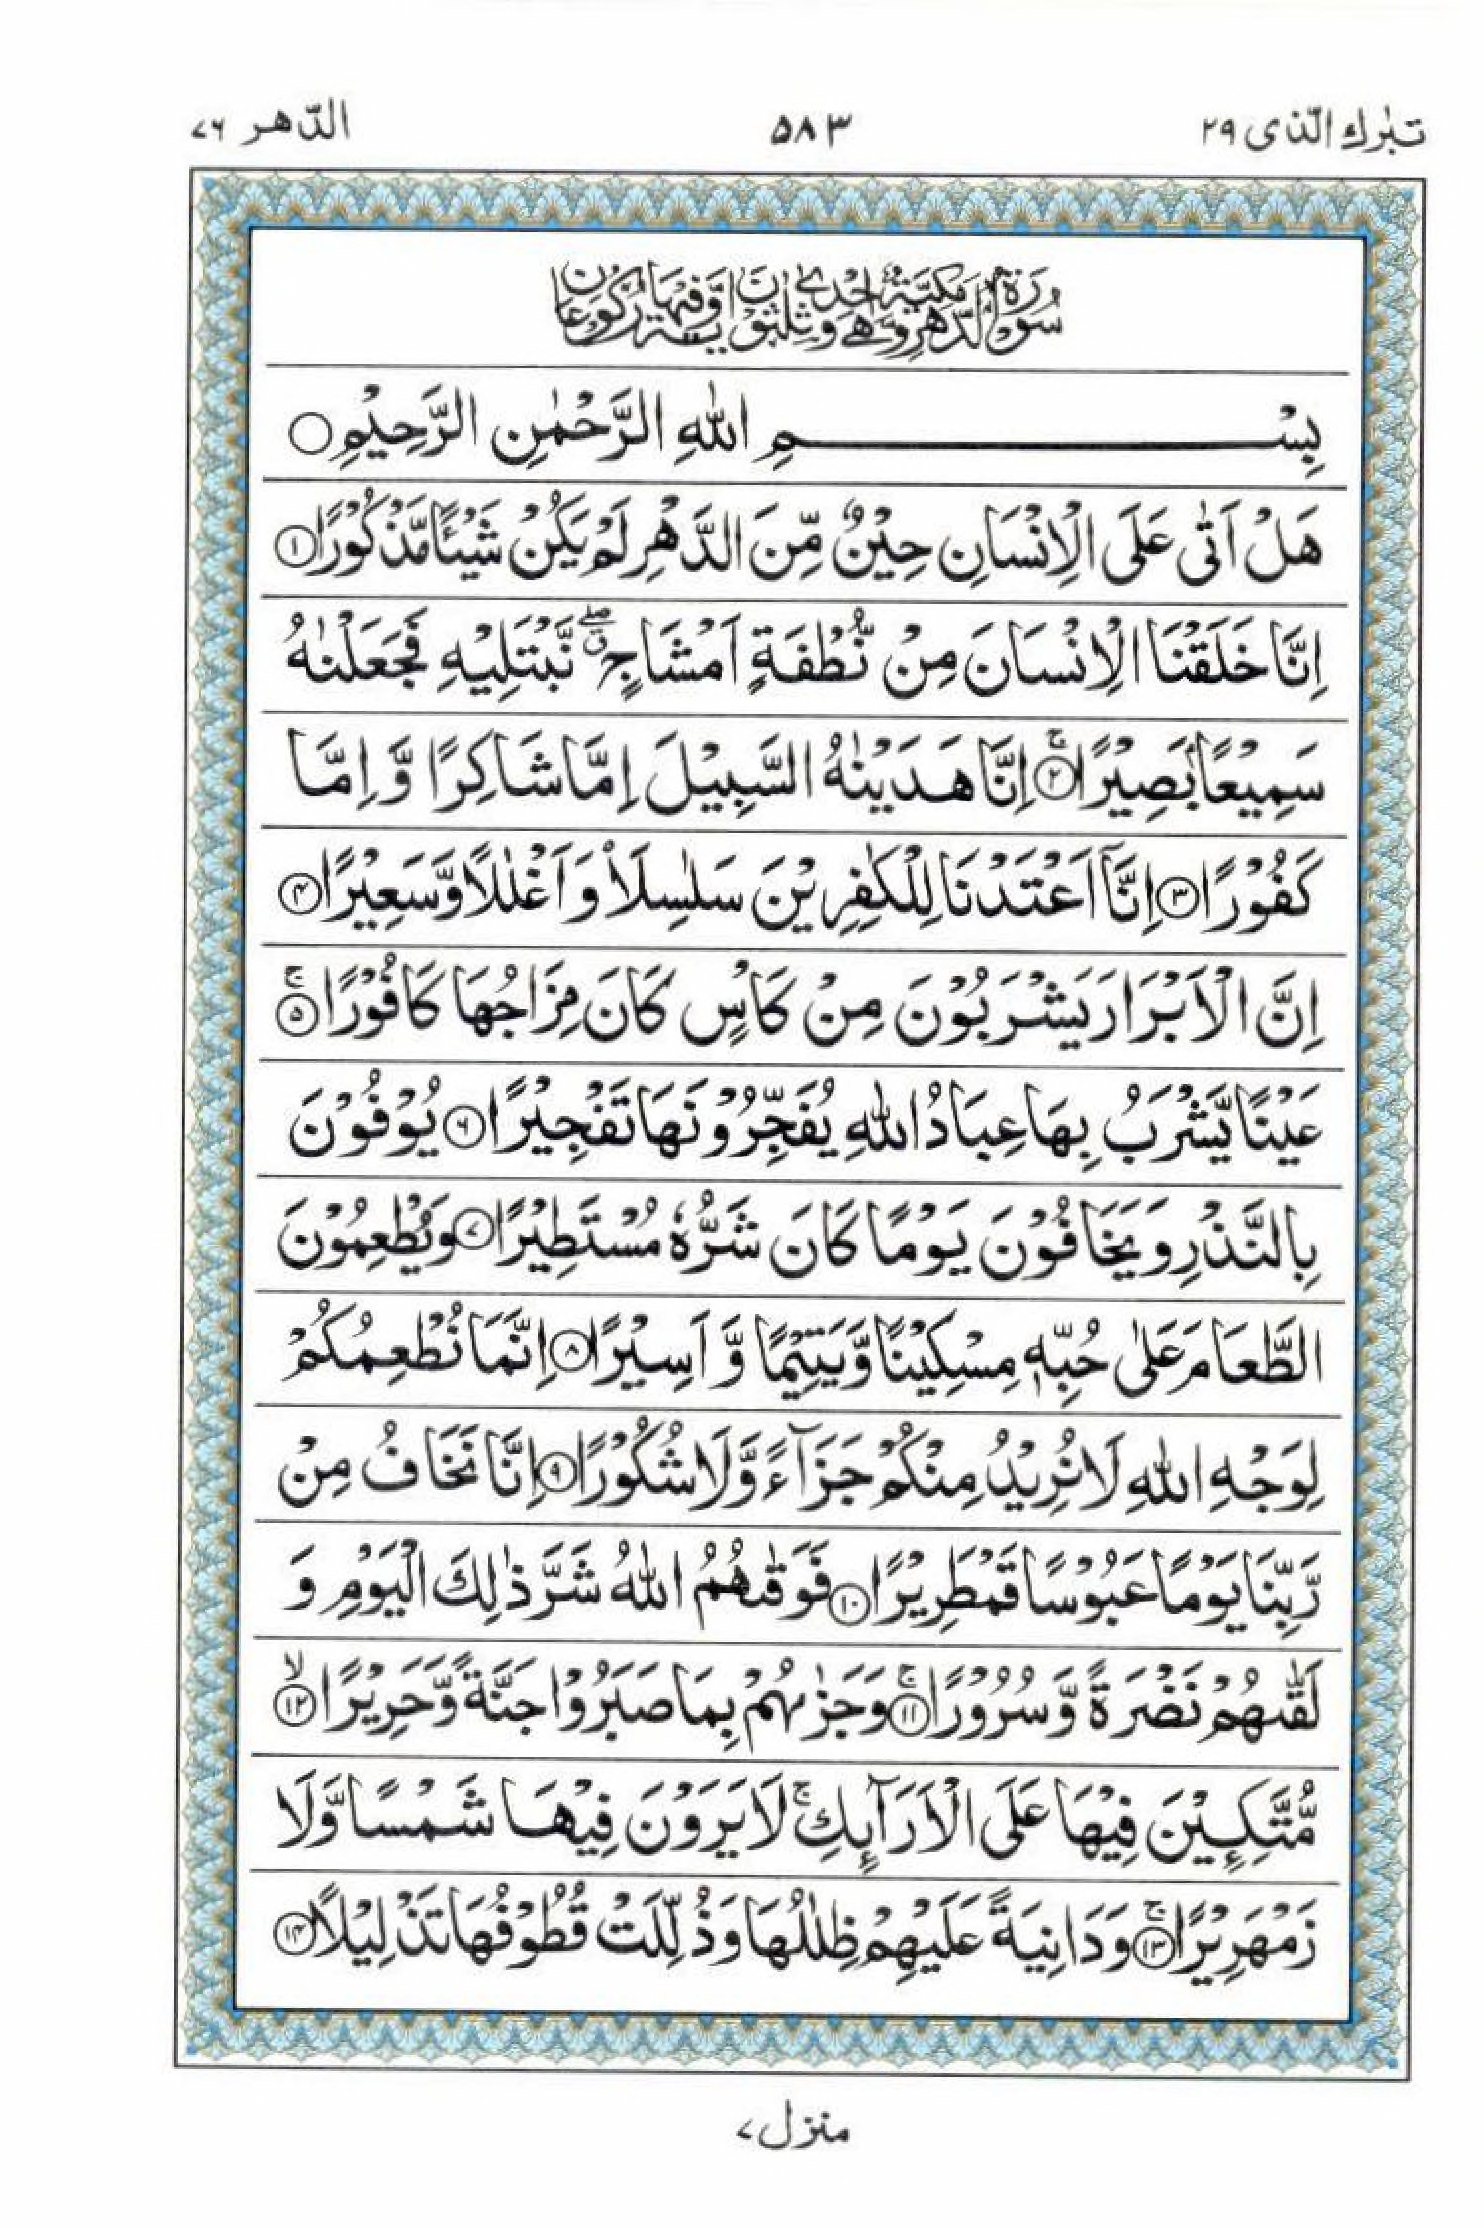 تبٰرك الّذى ٢٩
٥٨٣
الدّهر ٧٦
سُوْرَةُ الدَّهْرِ مَكِّيَّةٌ وَّهِيَ اِحْدٰى وَّثَلٰثُوْنَ اٰيَةً وَّفِيْهَا رُكُوْعَانِ
بِسْمِ اللّٰهِ الرَّحْمٰنِ الرَّحِيْمِ ○
هَلْ اَتٰى عَلَى الْاِنْسَانِ حِيْنٌ مِّنَ الدَّهْرِ لَمْ يَكُنْ شَيْـًٔا مَّذْكُوْرًا ١
اِنَّا خَلَقْنَا الْاِنْسَانَ مِنْ نُّطْفَةٍ اَمْشَاجٍ ۖ ق نَّبْتَلِيْهِ فَجَعَلْنٰهُ
سَمِيْعًۢا بَصِيْرًا ٢ۚ اِنَّا هَدَيْنٰهُ السَّبِيْلَ اِمَّا شَاكِرًا وَّ اِمَّا
كَفُوْرًا ٣ اِنَّاۤ اَعْتَدْنَا لِلْكٰفِرِيْنَ سَلٰسِلَا۟ وَ اَغْلٰلًا وَّ سَعِيْرًا ٤
اِنَّ الْاَبْرَارَ يَشْرَبُوْنَ مِنْ كَاْسٍ كَانَ مِزَاجُهَا كَافُوْرًا ٥ۚ
عَيْنًا يَّشْرَبُ بِهَا عِبَادُ اللّٰهِ يُفَجِّرُوْنَهَا تَفْجِيْرًا ٦ يُوْفُوْنَ
بِالنَّذْرِ وَ يَخَافُوْنَ يَوْمًا كَانَ شَرُّهٗ مُسْتَطِيْرًا ٧ وَ يُطْعِمُوْنَ
الطَّعَامَ عَلٰى حُبِّهٖ مِسْكِيْنًا وَّ يَتِيْمًا وَّ اَسِيْرًا ٨ اِنَّمَا نُطْعِمُكُمْ
لِوَجْهِ اللّٰهِ لَا نُرِيْدُ مِنْكُمْ جَزَآءً وَّ لَا شُكُوْرًا ٩ اِنَّا نَخَافُ مِنْ
رَّبِّنَا يَوْمًا عَبُوْسًا قَمْطَرِيْرًا ١٠ فَوَقٰىهُمُ اللّٰهُ شَرَّ ذٰلِكَ الْيَوْمِ وَ
لَقّٰىهُمْ نَضْرَةً وَّ سُرُوْرًا ١١ۚ وَ جَزٰىهُمْ بِمَا صَبَرُوْا جَنَّةً وَّ حَرِيْرًا ١٢ۙ
مُّتَّكِـِٕيْنَ فِيْهَا عَلَى الْاَرَآىِٕكِ ۚ لَا يَرَوْنَ فِيْهَا شَمْسًا وَّ لَا
زَمْهَرِيْرًا ١٣ۚ وَ دَانِيَةً عَلَيْهِمْ ظِلٰلُهَا وَ ذُلِّلَتْ قُطُوْفُهَا تَذْلِيْلًا ١٤
منزل ٧